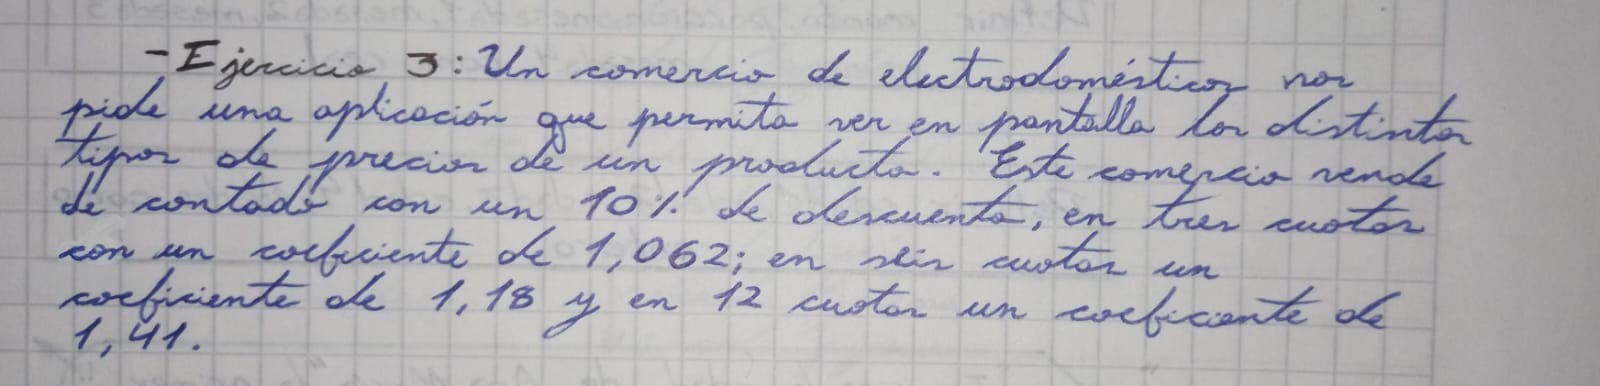 - Ejercicio 3: Un comercio de electrodomésticos nos
pide una aplicación que permita ver en pantalla los distintos
tipos de precios de un producto. Este comercio vende
de contado con un 10% de descuento, en tres cuotas
con un coeficiente de 1,062; en seis cuotas un
coeficiente de 1,18 y en 12 cuotas un coeficiente de
1,41.